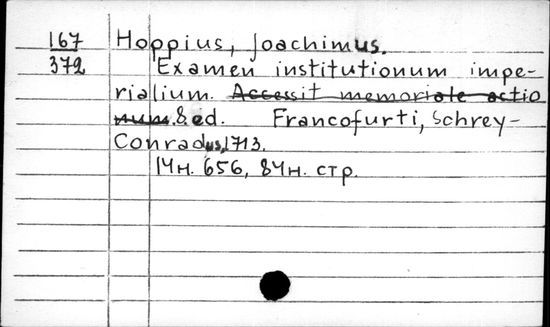 167 Hoppius, Joachimus.
372 Examen institutionum impe-
rialium. Accessit memoriale actio
num. 8 ed. Francofurti, Schrey-
Conradus, 1713.
14н. 656, 84н. стр.